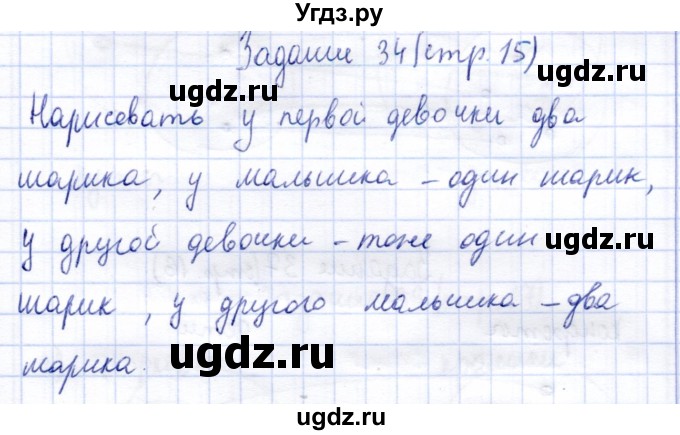 Угдз.ру
Задание 34 (стр. 15)
ugdz.ru
ugdz.ru
Нарисовать у первой девочки два
шарика, у малышика – один шарик,
ugdz.ru
у другой девочки – тоже один
шарик, у другого мальшика – два
ugdz.ru
шарика.
ugdz.ru